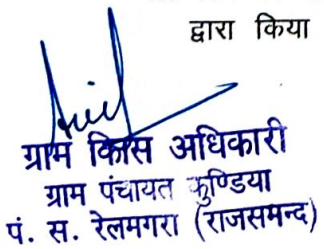 द्वारा किया
ग्राम विकास अधिकारी
ग्राम पंचायत कुण्डिया
पं. स. रेलमगरा (राजसमन्द)